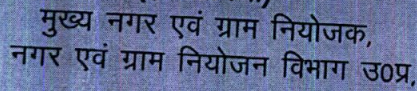 मुख्य नगर एवं ग्राम नियोजक,
नगर एवं ग्राम नियोजन विभाग उ०प्र,